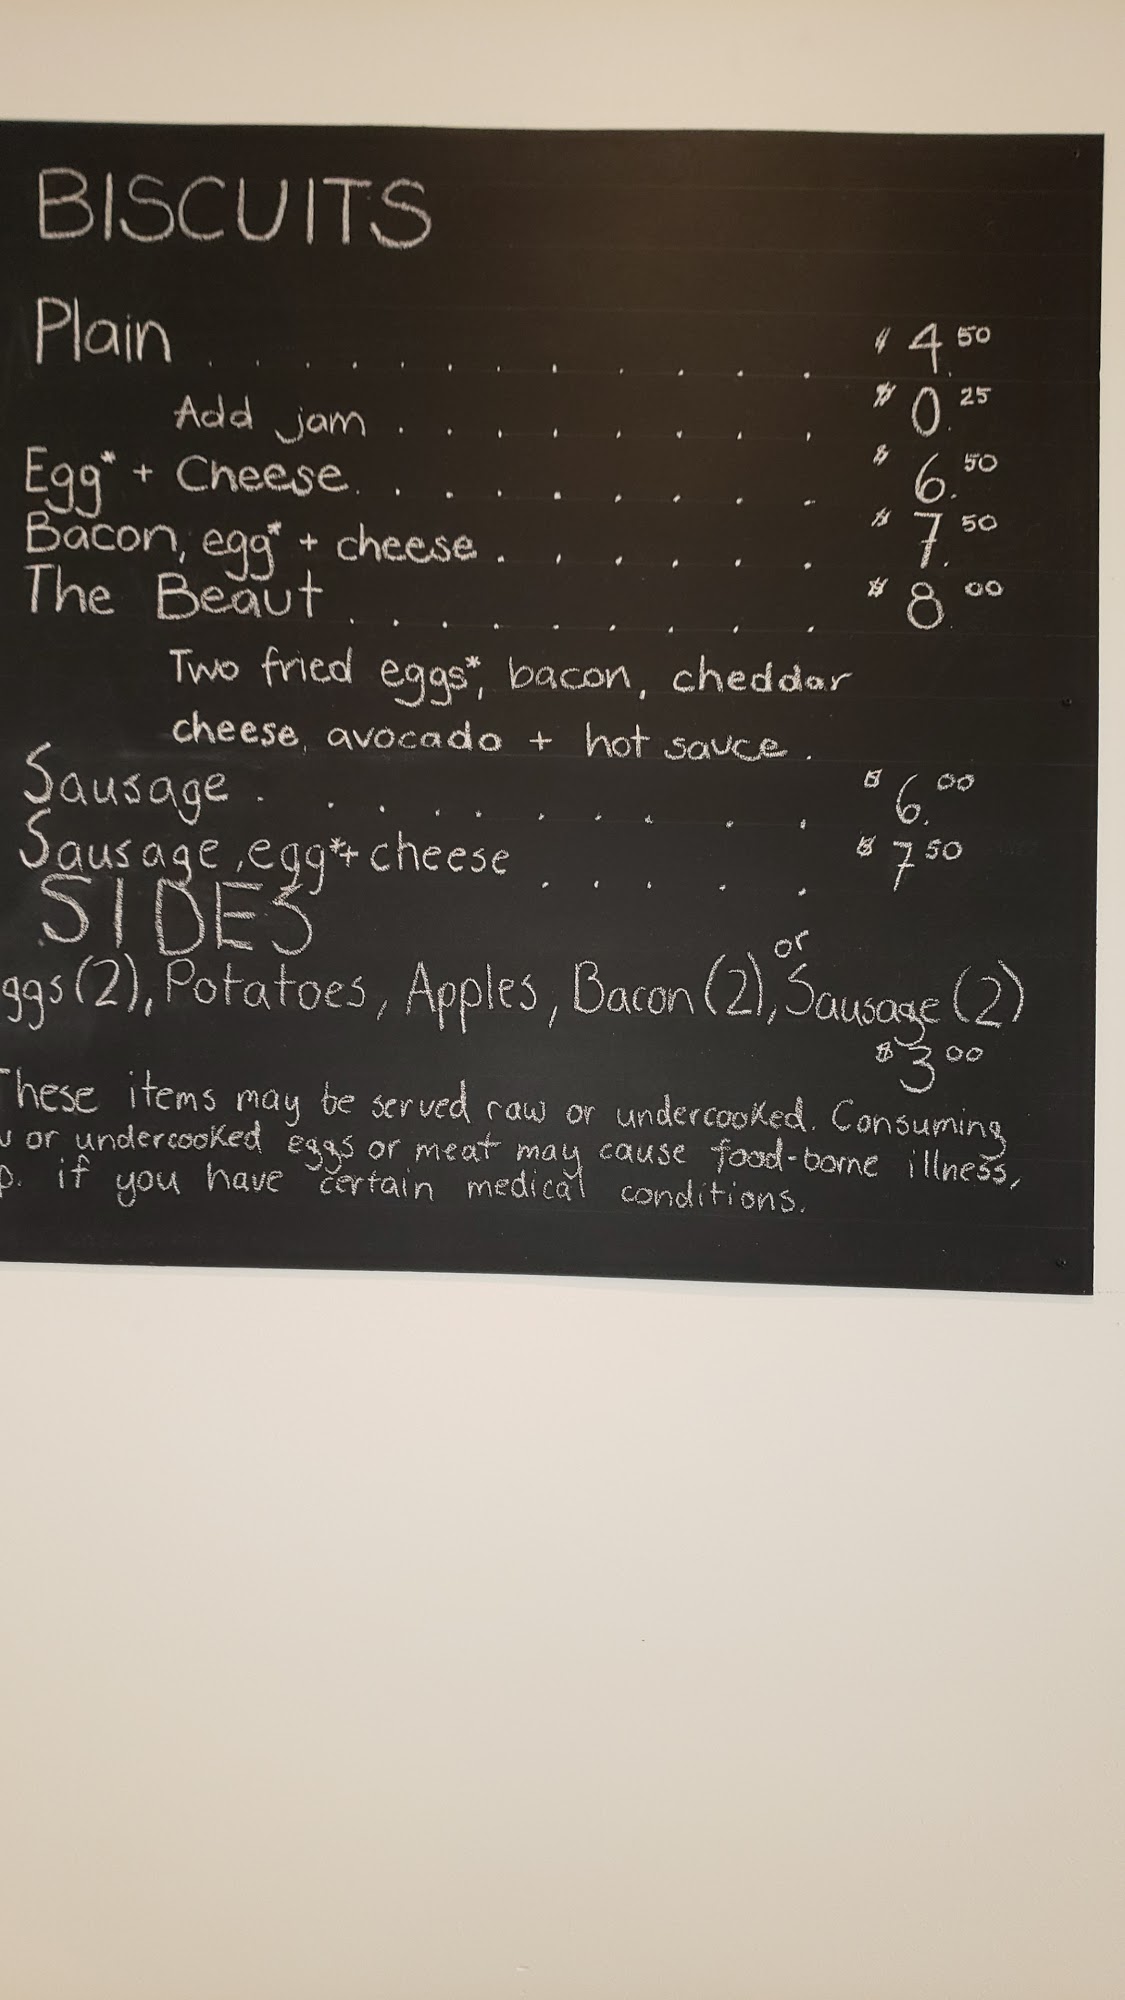 BISCUITS
Plain . . . . . . . . . . . $4.50
Add jam . . . . . . . . $0.25
Egg* + Cheese . . . . . . . . . $6.50
Bacon, egg* + cheese . . . . . . $7.50
The Beaut . . . . . . . . . $8.00
Two fried eggs*, bacon, cheddar
cheese, avocado + hot sauce.
Sausage . . . . . . . . . . $6.00
Sausage, egg*+ cheese . . . . . $7.50
SIDES
ggs (2), Potatoes, Apples, Bacon (2), or Sausage (2)
$3.00
These items may be served raw or undercooked. Consuming
or undercooked eggs or meat may cause food-borne illness,
p. if you have certain medical conditions.